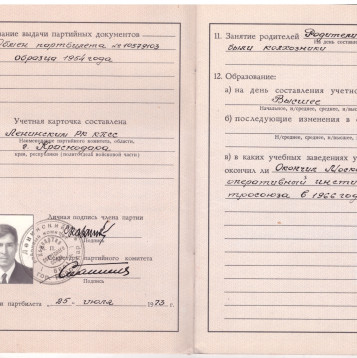 нование выдачи партийных документов
Обмен партбилета № 10579103
образца 1954 года
Учетная карточка составлена
Ленинским РК КПСС
Наименование партийного комитета, области,
г. Краснодара
края, республики (политотдела войсковой части)
Личная подпись члена партии
Подпись
Секретарь партийного комитета
Подпись
и партбилета „25" июля 1973 г.
11. Занятие родителей Родители
На день состав
были колхозники
12. Образование:
а) на день составления учетно
Высшее
Начальное, н/среднее, среднее, н/выс
б) последующие изменения в о
Н/среднее, среднее, н/высш
в) в каких учебных заведениях у
окончил ли Окончил Моско
оперативной инсти
тросоюза в 1966 год